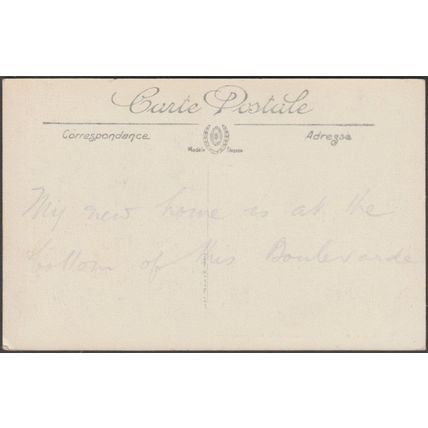 Carte Postale
Correspondance
Adresse
Modèle Déposé
My new home is at the
bottom of this Boulevarde